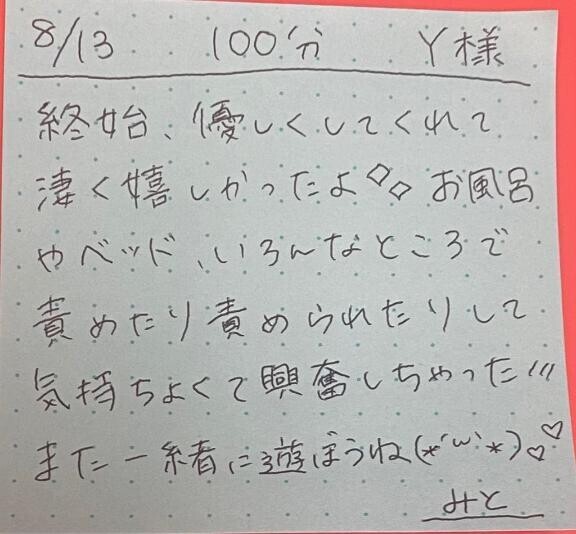 8/13 100分 Y様
終始、優しくしてくれて
凄く嬉しかったよ◇◇ お風呂
やベッド、いろんなところで
責めたり責められたりして
気持ちよくて興奮しちゃった!!!
また一緒に遊ぼうね(*´ω`*)♡♡
みと